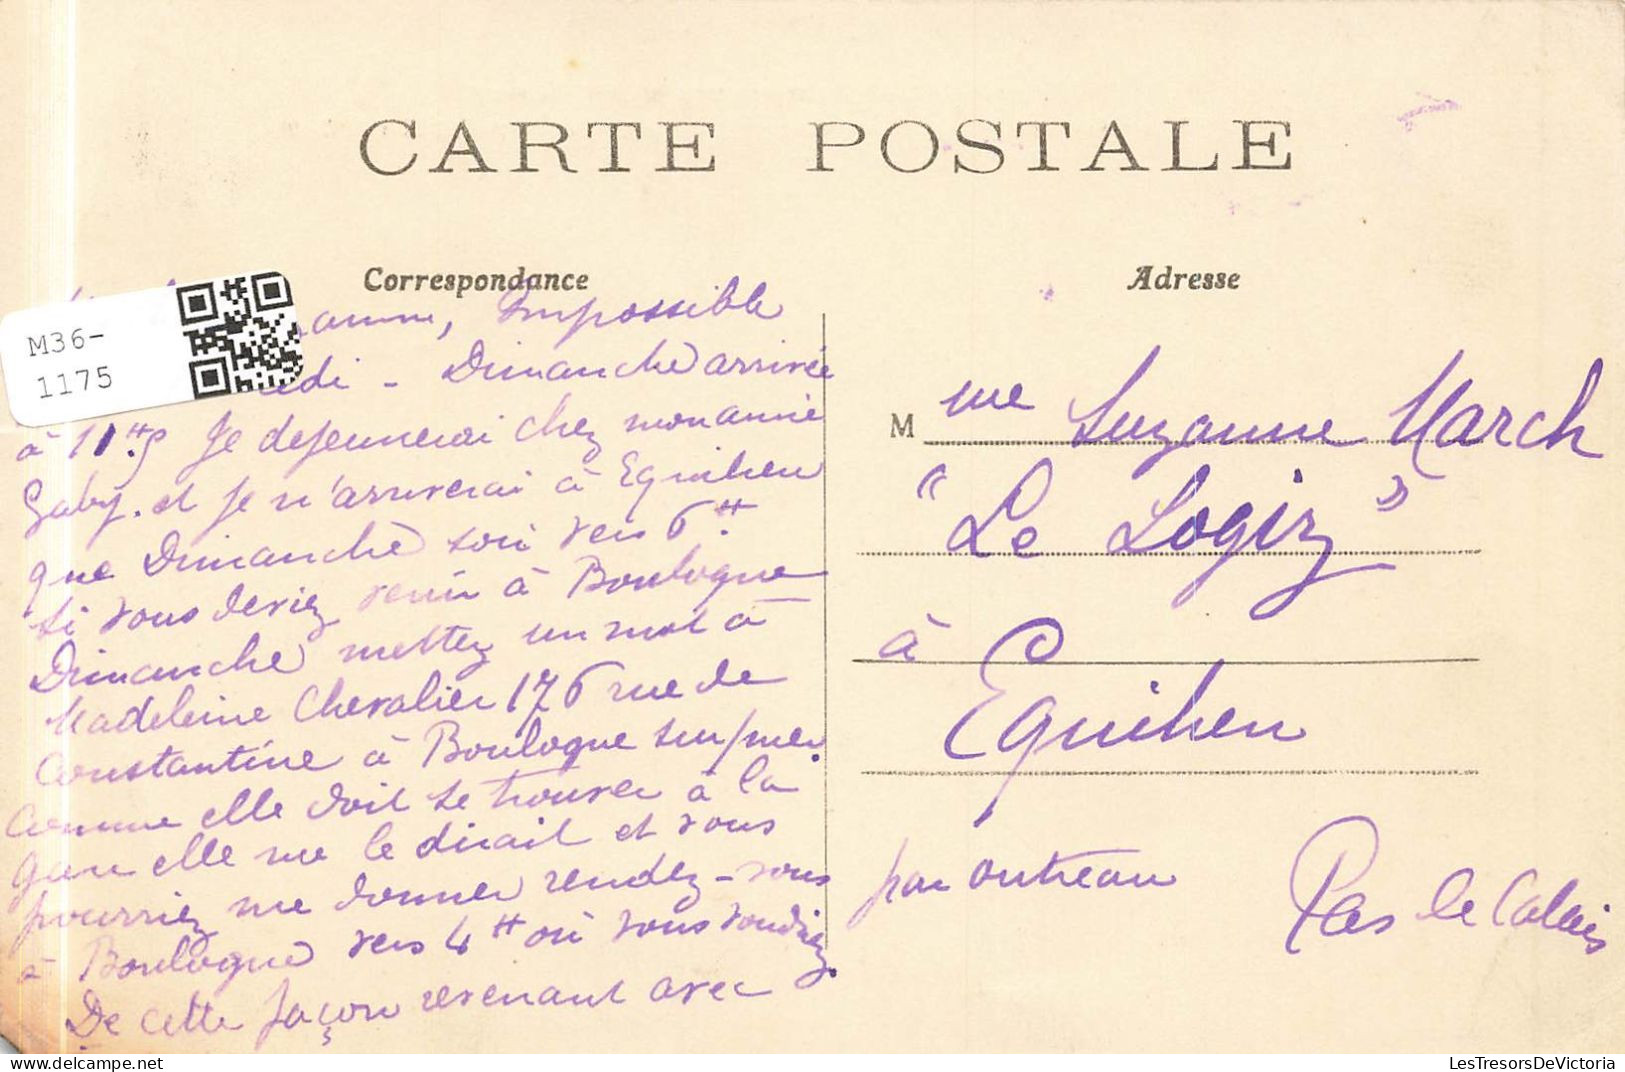 CARTE POSTALE
Correspondance
Impossible
M36-
1175
edi - Dimanche arrivée
à 11H. Je dejeunerai chez mon amie
Gaby. et je n'arriverai à Equihen
que Dimanche soir vers 6H.
Si vous deviez venir à Boulogne
Dimanche mettez un mot à
Madeleine Chevalier 176 rue de
Constantine à Boulogne sur/mer.
Comme elle doit se trouver à la
gare elle me le dirait et vous
pourriez me donner rendez-vous
à Boulogne vers 4H où vous voudrez.
De cette façon revenant avec
Adresse
M me Suzanne March
"Le Logiz"
à
Equihen
par outreau
Pas de Calais
LesTresorsDeVictoria